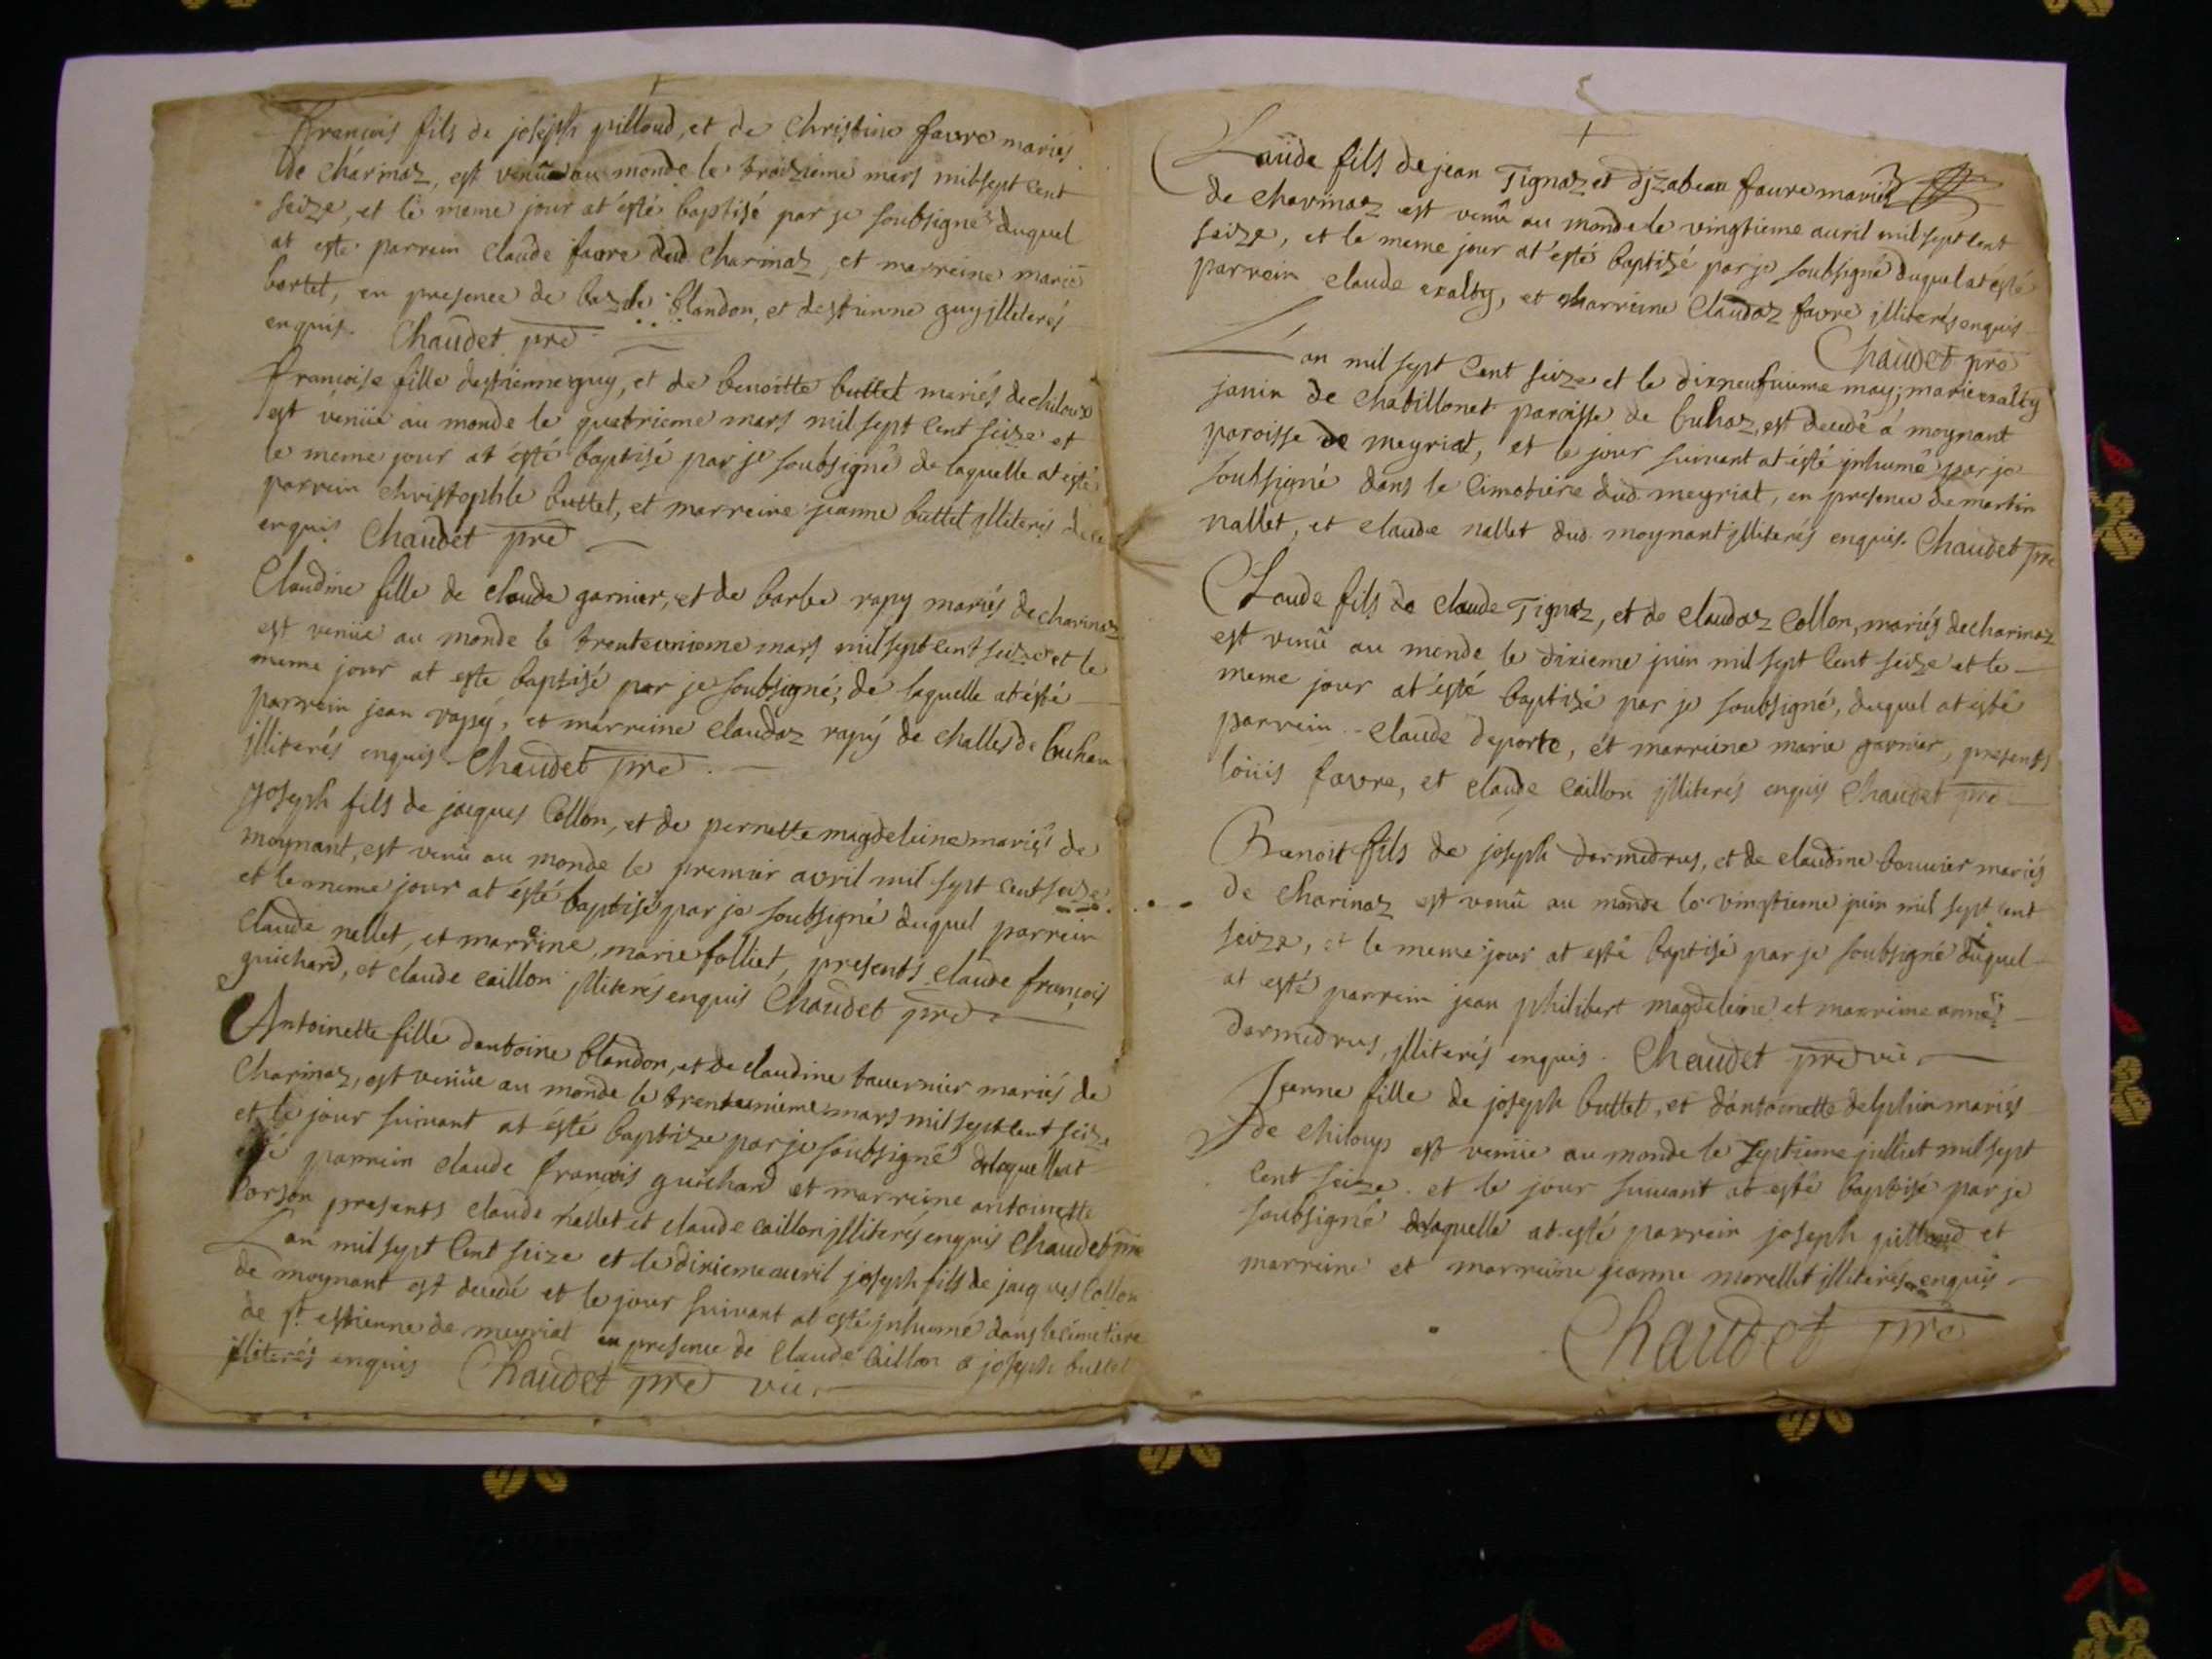 françois fils de joseph pilloud, et de Christine favre mariés
de charinaz, est venû au monde le troizieme mars mil sept cent
seize, et le meme jour at ésté baptisé par je soubsigné duquel
at esté parrein Claude favre dud. Charinaz, et marreine marie
bartet, en presence de blandon, et destienne guy jlliterés
enquis. Chaudet pre
françoise fille destienne guy, et de benoitte buttet mariés de chiloux
est venüe au monde le quatrieme mars mil sept cent seize et
le meme jour at ésté baptisé par je soubsigné de laquelle at esté
parrein christophle buttet, et marreine jeanne buttet jlliterés de ce
enquis Chaudet pre
Claudine fille de claude garnier, et de barbe rapy mariés de charinaz
est venüe au monde le trenteunieme mars mil sept cent seize et le
meme jour at este baptisé par je soubsigné, de laquelle at ésté
parrein jean rapy, et marreine claudaz rapy de challes de buhan
jlliterés enquis. Chaudet pre
joseph fils de jacques Collon, et de pernette magdeleine mariés de
moynant, est venû au monde le premier avril mil sept cent seize
et le meme jour at ésté baptisé par je soubsigné duquel parrein
claude nallet, et marreine, marie folliet, presents claude françois
guichard, et claude caillon jlliterés enquis Chaudet pre
Antoinette fille dantoine blandon, et de claudine tavernier mariés de
Charinaz, est venüe au monde le trenteunieme mars mil sept cent seize
et le jour suivant at ésté baptizé par je soubsigné de laquelle at
esté parrein claude françois guichard et marreine antoinette
corson presents claude nallet et claude caillon jlliterés enquis Chaudet pre
Lan mil sept cent seize et le dixieme avril joseph fils de jacques Collon
de moynant est decedé et le jour suivant at esté jnhumé dans le cimetiere
de st. estienne de meyriat en presence de claude Caillon & joseph buttet
jlliterés enquis Chaudet pre vic.
Claude fils de jean Tignaz et djzabeau favre mariés
de charinaz est venû au monde le vingtieme auril mil sept cent
seize, et le meme jour at ésté baptizé par je soubsigné duquel at ésté
parrein claude exalty, et marreine Claudaz favre jlliterés enquis
Chaudet pre
Lan mil sept cent seize et le dixneufuieme may, marie exalty
janin de chatillonet paroisse de buhaz, est decedé á moynant
paroisse de meyriat, et le jour suivant at ésté jnhumé par je
soubsigné dans le cimetiere dud. meyriat, en presence de martin
nallet, et claude nallet dud. moynant jlliterés enquis. Chaudet pre
Claude fils de claude Tignaz, et de claudaz Collon, mariés de charinaz
est venû au monde le dixieme juin mil sept cent seize et le
meme jour at ésté baptisé par je soubsigné, duquel at ésté
parrein claude deporte, ét marreine marie garnier, presents
loüis favre, et claude caillon jlliterés enquis Chaudet pre
Benoit fils de joseph darmedrus, et de claudine bouvier mariés
de Charinaz est venû au monde le vingtieme juin mil sept cent
seize, et le meme jour at esté baptisé par je soubsigné duquel
at esté parrein jean philibert magdeleine, et marreine anne
darmedrus, jlliterés enquis. Chaudet pre vic.
Jeanne fille de joseph buttet, et dántoinette delphin mariés
de chiloup est venüe au monde le septieme julliet mil sept
cent seize. et le jour suivant at esté baptisé par je
soubsigné de laquelle at esté parrein joseph pilloud et
marreine et marreine jeanne morellet jlliterés enquis
Chaudet pre